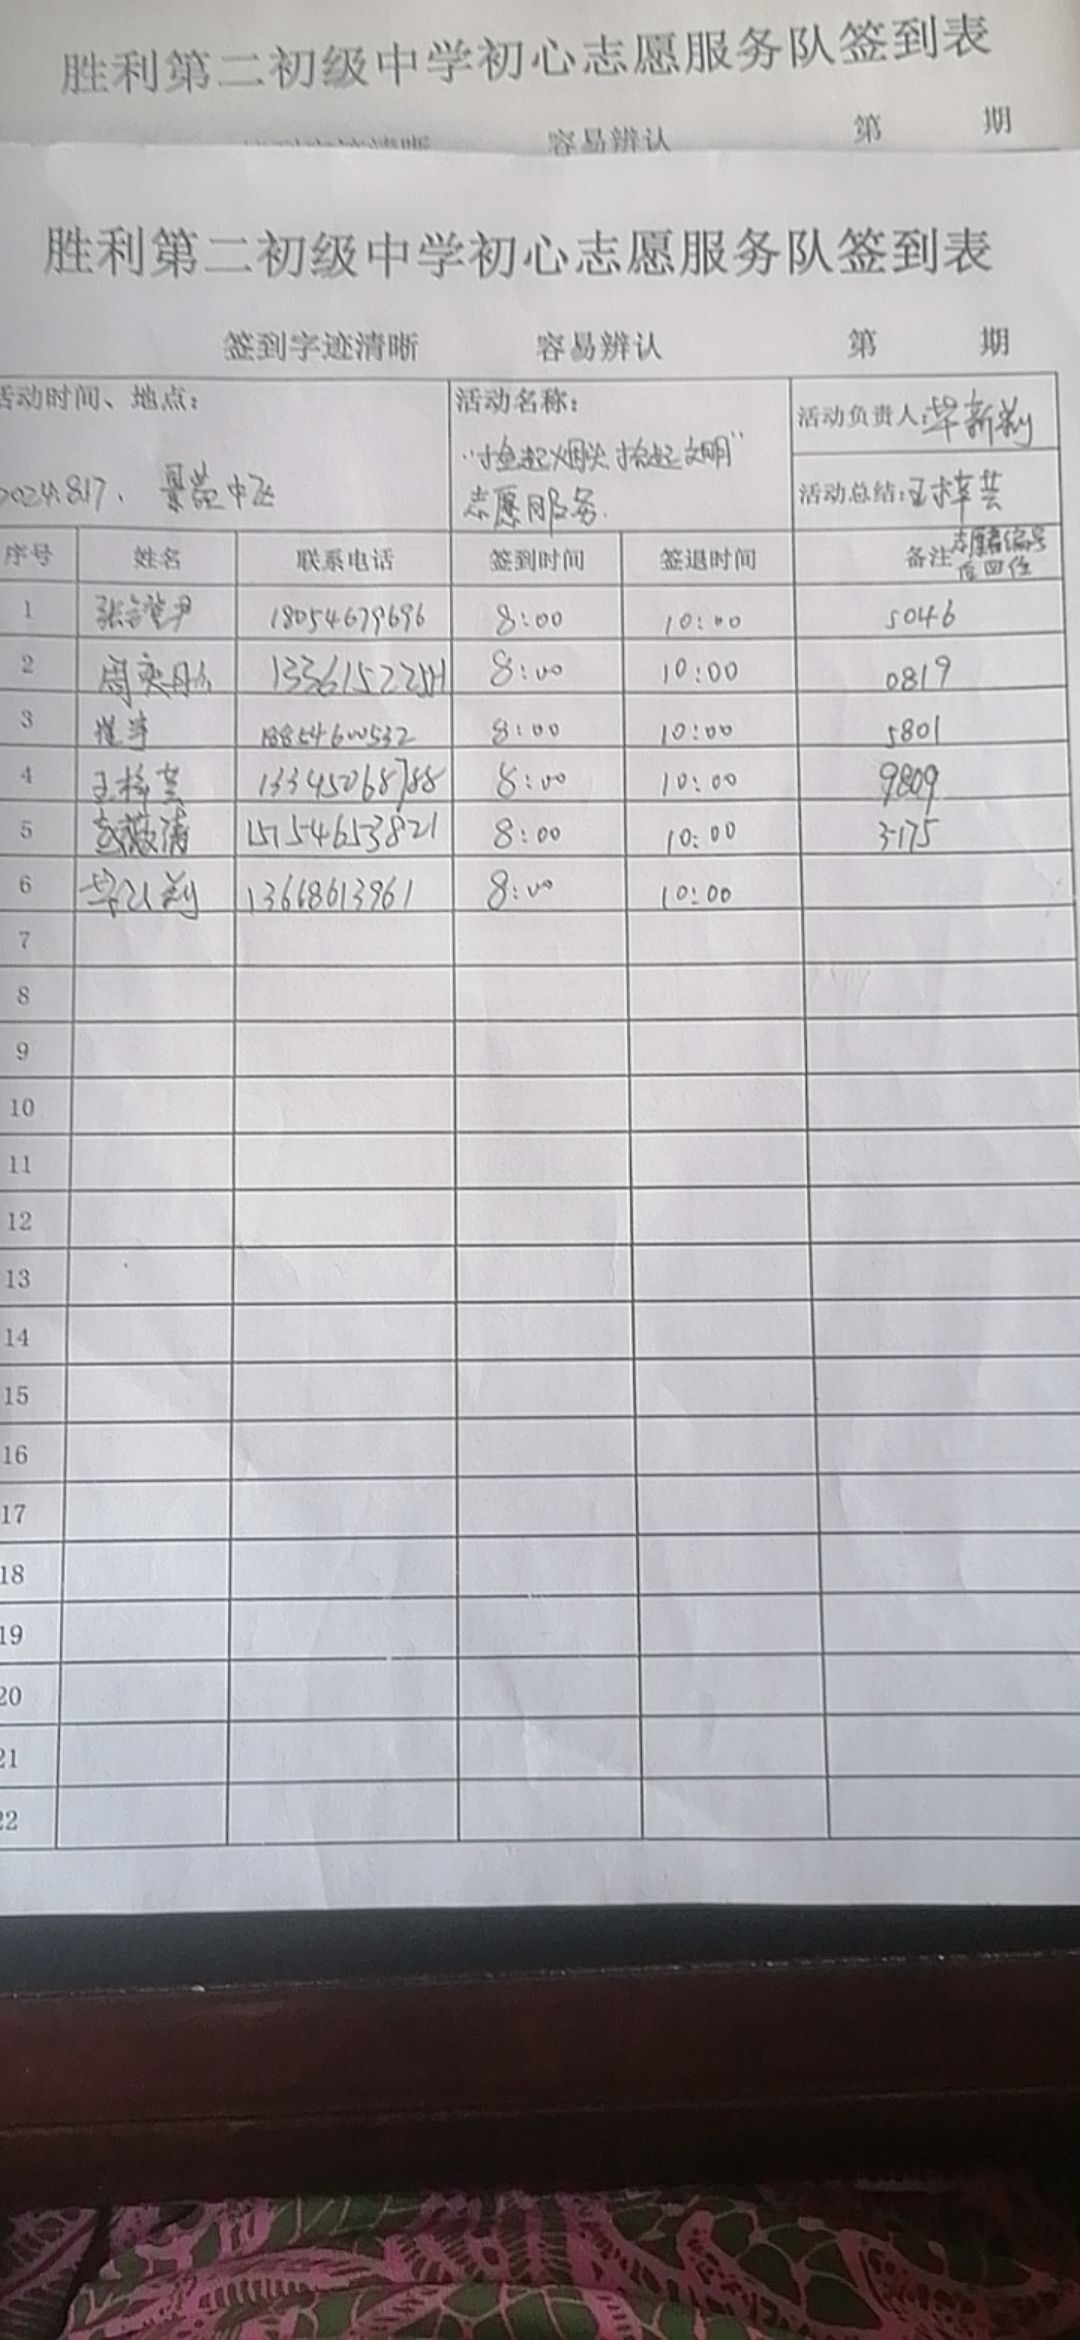 胜利第二初级中学初心志愿服务队签到表
容易辨认 第 期
胜利第二初级中学初心志愿服务队签到表
签到字迹清晰 容易辨认 第 期
活动时间、地点：
2024.8.17.
活动名称：
"捡起烟头 拾起文明"
志愿服务.
活动负责人：
活动总结：王梓芸
序号 姓名 联系电话 签到时间 签退时间 备注 志愿者编号
后四位
1 18054679696 8:00 10:00 5046
2 8:00 10:00 0819
3 18854600532 8:00 10:00 5801
4 王梓芸 13345068788 8:00 10:00 9809
5 15154653821 8:00 10:00 3175
6 13668613961 8:00 10:00
7
8
9
10
11
12
13
14
15
16
17
18
19
20
21
22